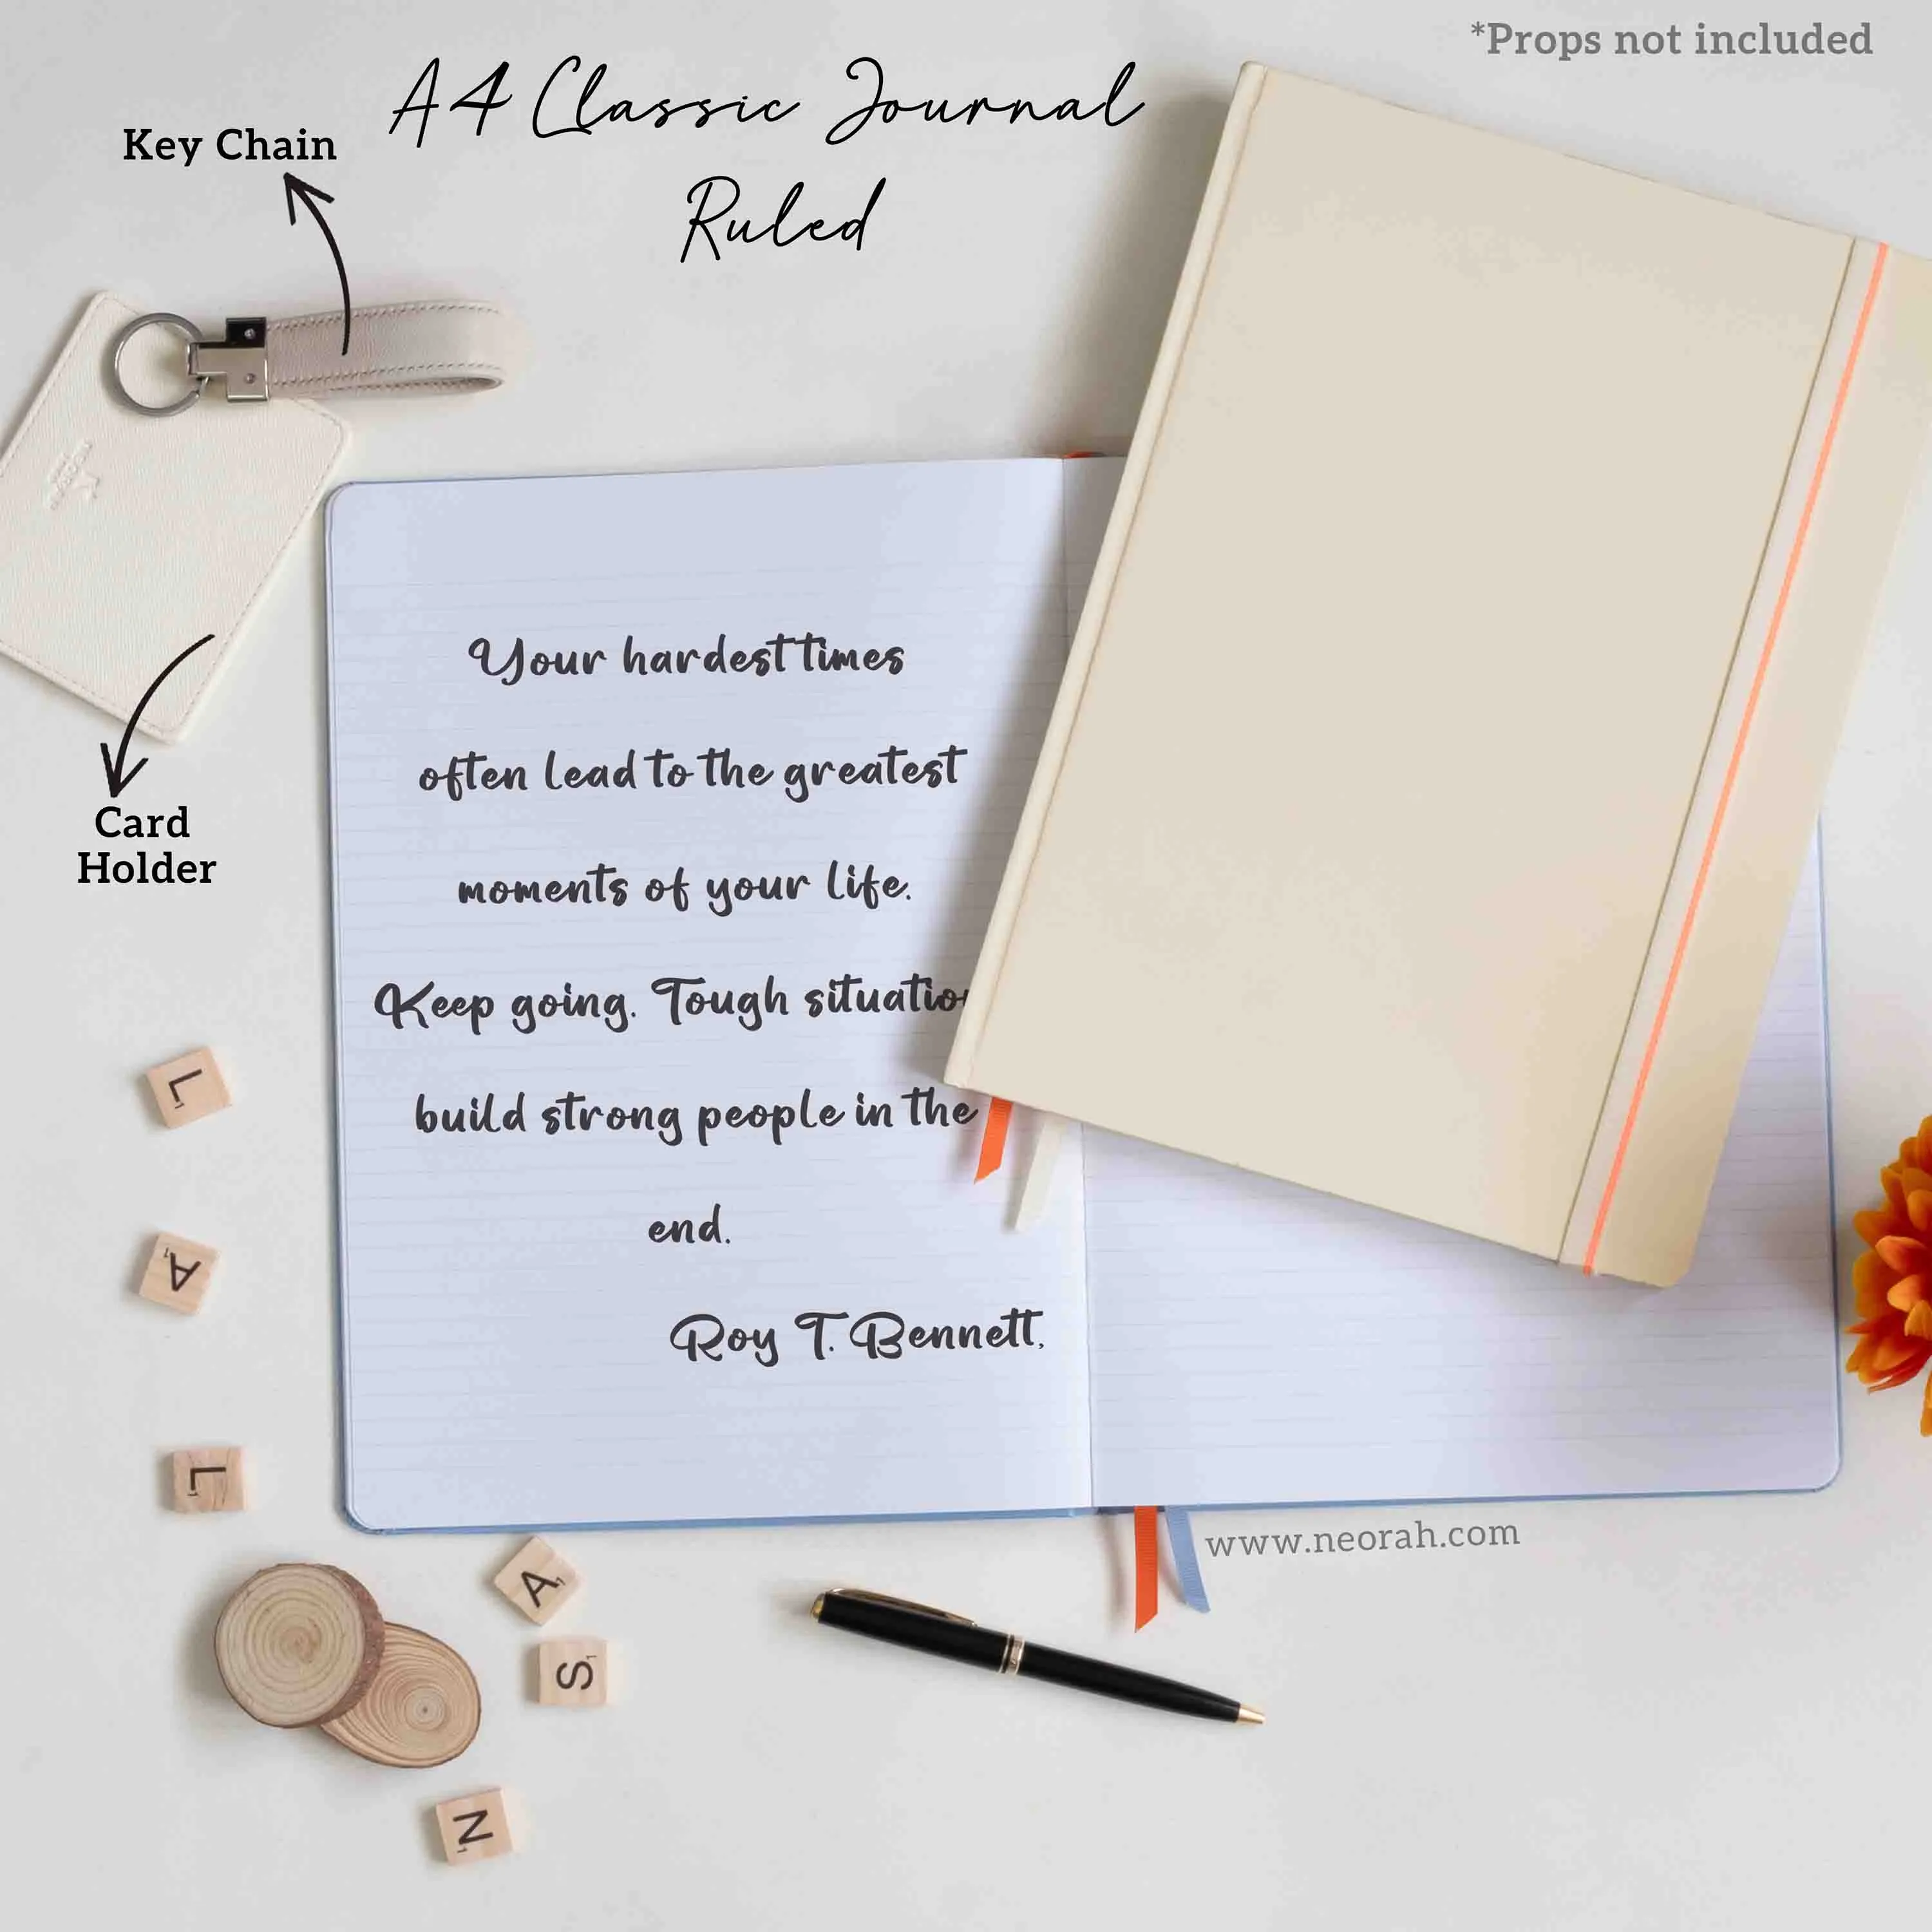 *Props not included
A4 Classic Journal
Ruled
Key Chain
Card
Holder
Your hardest times
often lead to the greatest
moments of your life.
Keep going. Tough
build strong people in the
end.
Roy T. Bennett,
L
A
L
A
S
N
www.neorah.com